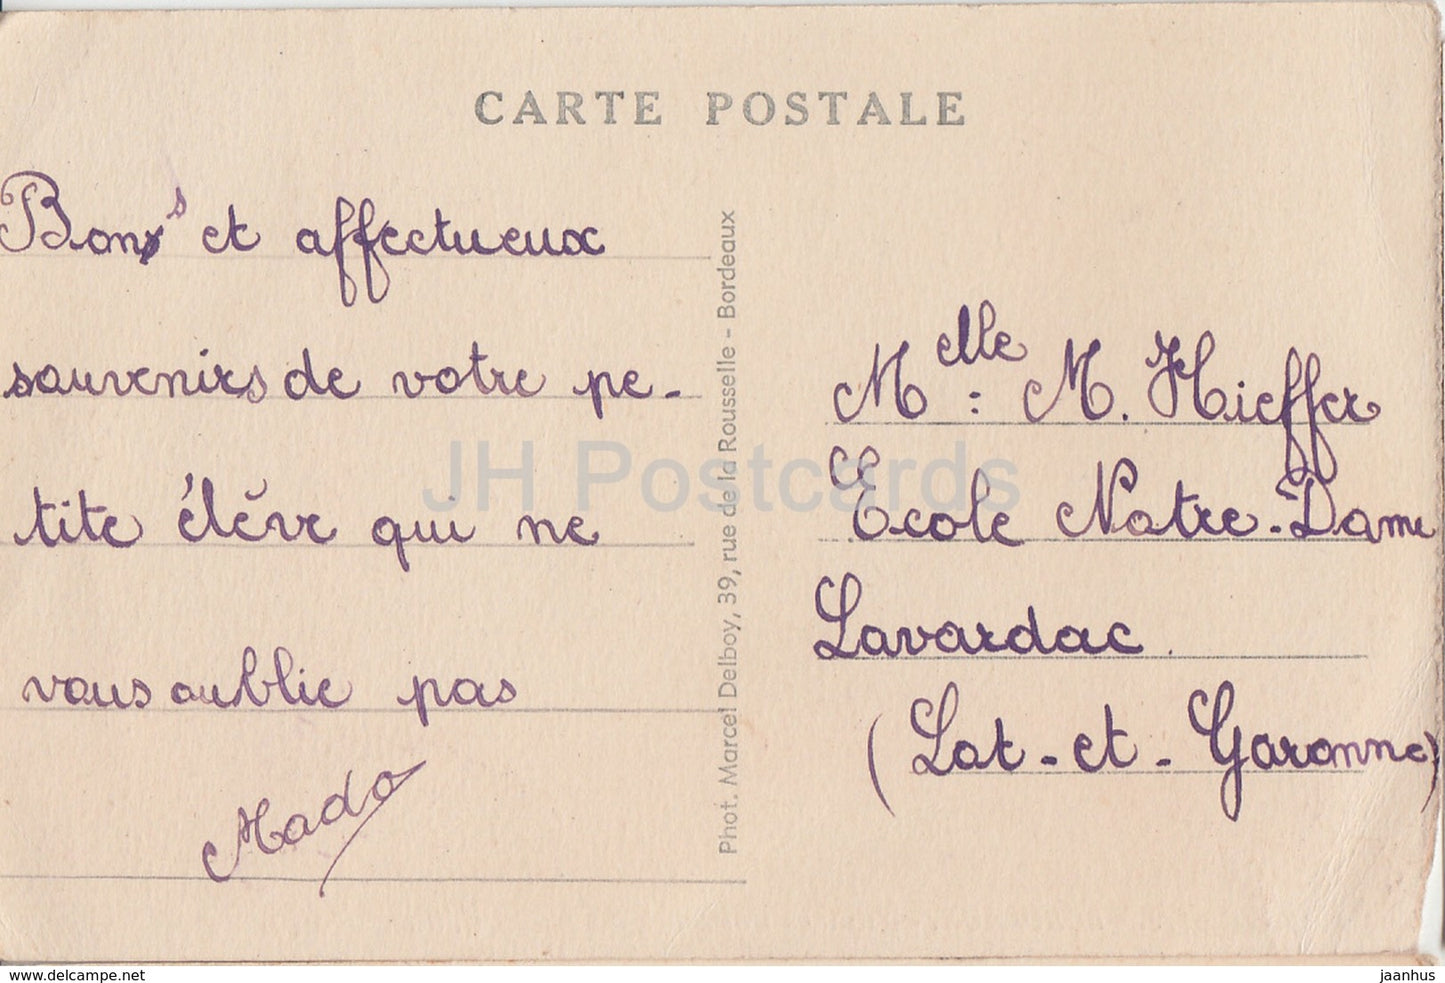 CARTE POSTALE
Bons et affectueux
souvenirs de votre pe-
tite élève qui ne
vous oublie pas
Mado
Phot. Marcel Delboy, 39, rue de la Rousselle - Bordeaux
Melle : M. Hieffer
Ecole Notre-Dame
Lavardac
(Lot-et-Garonne)
JH Postcards
www.delcampe.net
jaanhus